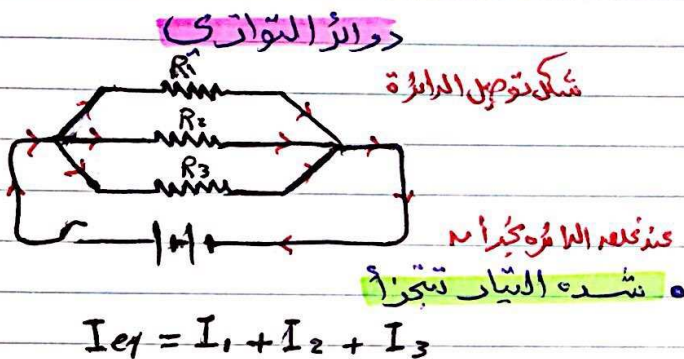 دوائر التوازي
شكل توصيل الدائرة
R1
R2
R3
عند غلق الدائرة نجد أنه
• شده التيار تتجزأ
Ieq = I1 + I2 + I3